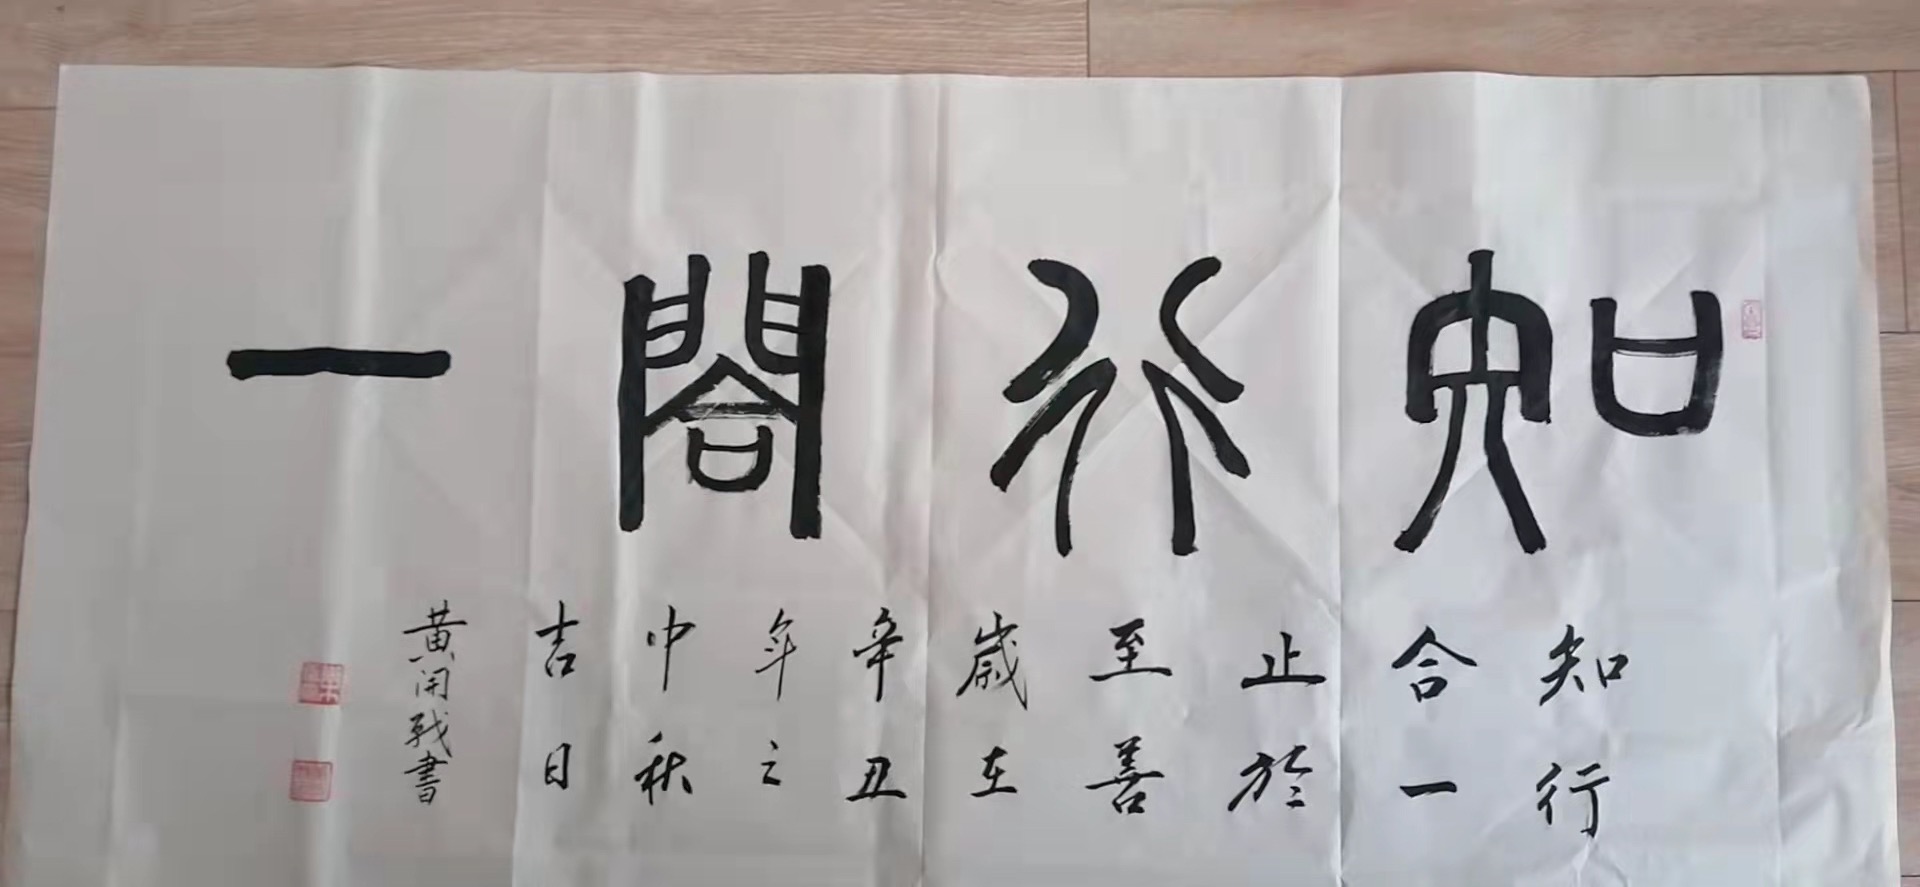 知行閤一
知行
合一
止於
至善
歲在
辛丑
年之
中秋
吉日
黄開戦書